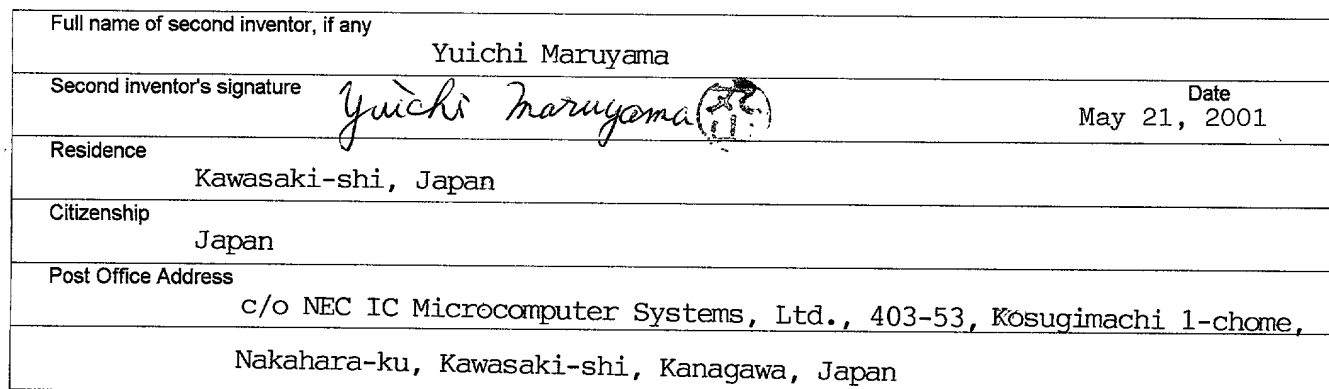 Full name of second inventor, if any
Yuichi Maruyama
Second inventor's signature Yuichi Maruyama
Date
May 21, 2001
Residence
Kawasaki-shi, Japan
Citizenship
Japan
Post Office Address
c/o NEC IC Microcomputer Systems, Ltd., 403-53, Kosugimachi 1-chome,
Nakahara-ku, Kawasaki-shi, Kanagawa, Japan